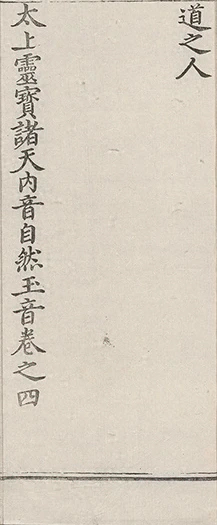 道之人
太上靈寶諸天内音自然玉音卷之四